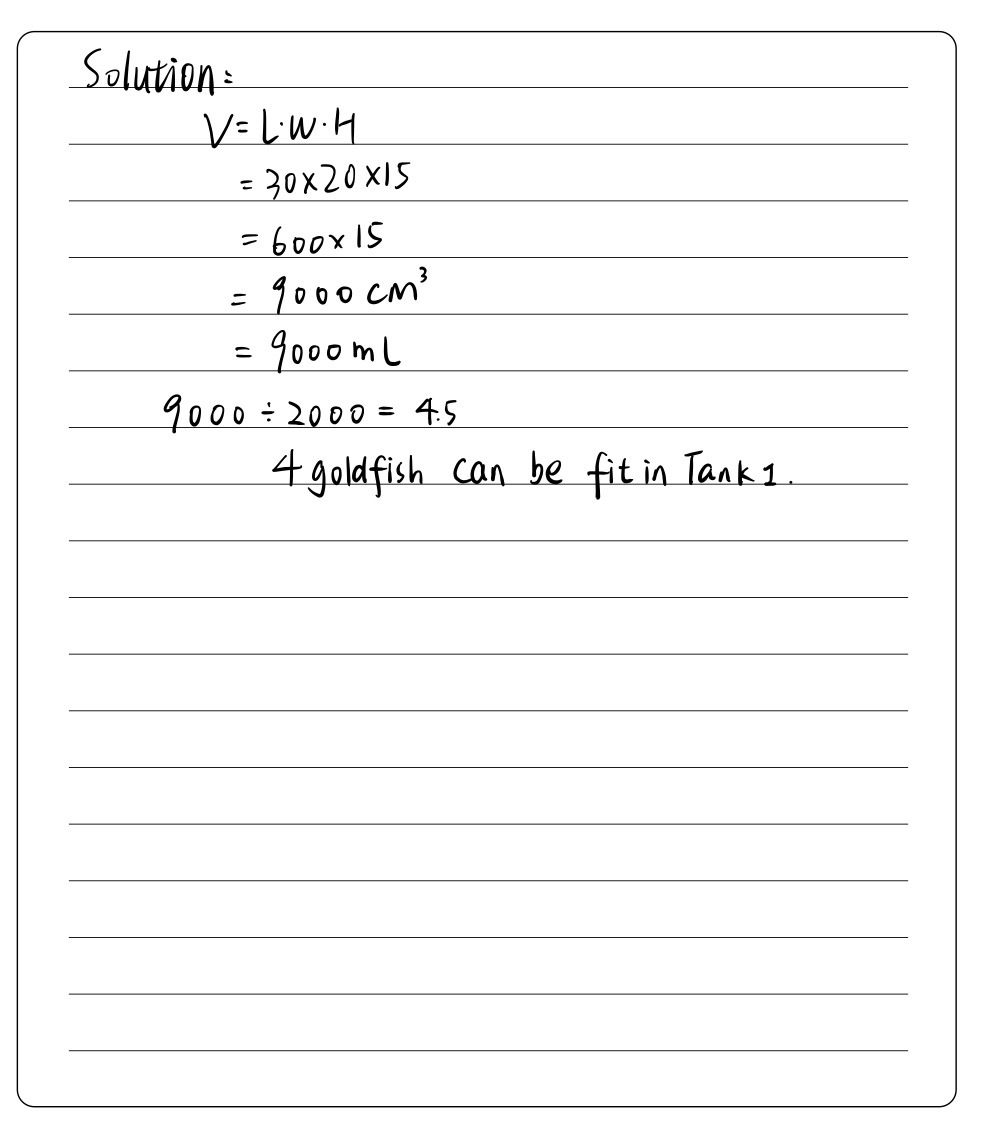 Solution:
V = L·W·H
= 30×20×15
= 600×15
= 9000 cm³
= 9000 mL
9000 ÷ 2000 = 4.5
4 goldfish can be fit in Tank 1.